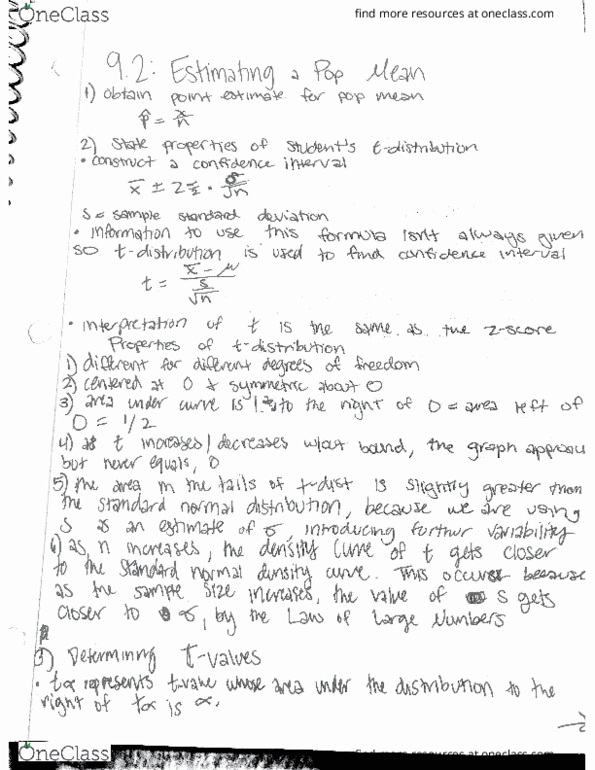 OneClass
find more resources at oneclass.com
9.2: Estimating a Pop Mean
1) obtain point estimate for pop mean
p̂ = x/n
2) State properties of Student's t-distribution
• construct a confidence interval
x̄ ± z α/2 · σ/√n
s = sample standard deviation
• information to use this formula isn't always given
so t-distribution is used to find confidence interval
t = (x̄ - μ)/(s/√n)
• interpretation of t is the same as the z-score
Properties of t-distribution
1) different for different degrees of freedom
2) centered at 0 & symmetric about 0
3) area under curve is 1 to the right of 0 = area left of
0 = 1/2
4) as t increases/decreases w/out bound, the graph approa
but never equals, 0
5) the area in the tails of t-dist is slightly greater than
the standard normal distribution, because we are using
s as an estimate of σ, introducing further variability
6) as n increases, the density curve of t gets closer
to the standard normal density curve. This occurs because
as the sample size increases, the value of s gets
closer to σ, by the Law of Large Numbers
3) Determining t-values
• tα represents t-value whose area under the distribution to the
right of tα is α.
OneClass
find more resources at oneclass.com